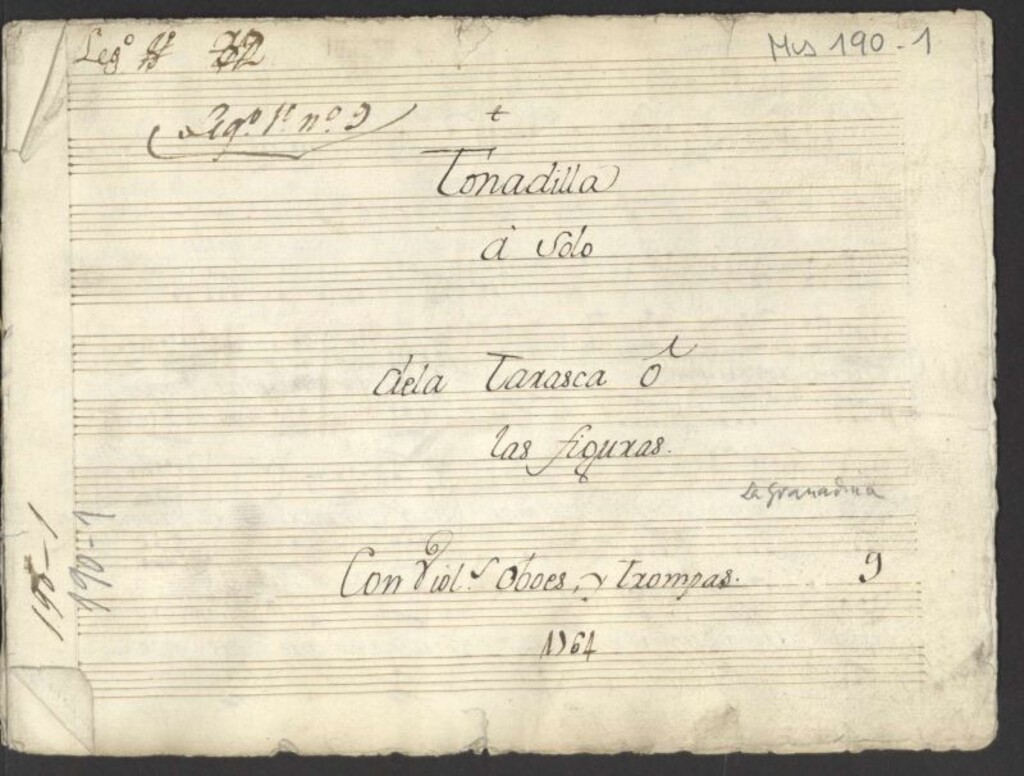 Legº
Mus 190-1
Legº 1º nº 9
+
Tonadilla
à Solo
dela Tarasca ô
las figuras.
La Granadina
Con Violˢ. Oboes, y Trompas.
9
1764
190-1
190-1